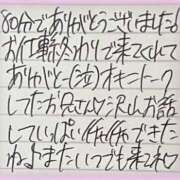 80分でありがとうございました!
お仕事終わりで来てくれて
ありがとー(泣)オキニトーク
したお兄さん♡沢山お話
していっぱいイチャイチャできた
ね♪またいつでも来てね♡